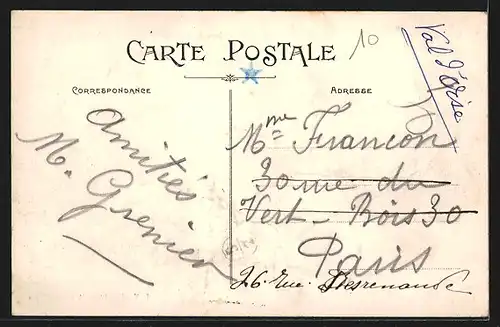 CARTE POSTALE
10
Val d'Oise
CORRESPONDANCE
ADRESSE
Amitiés
M. Grenier
Mme Francon
30 rue du
Vert-Bois 30
Paris
26. rue